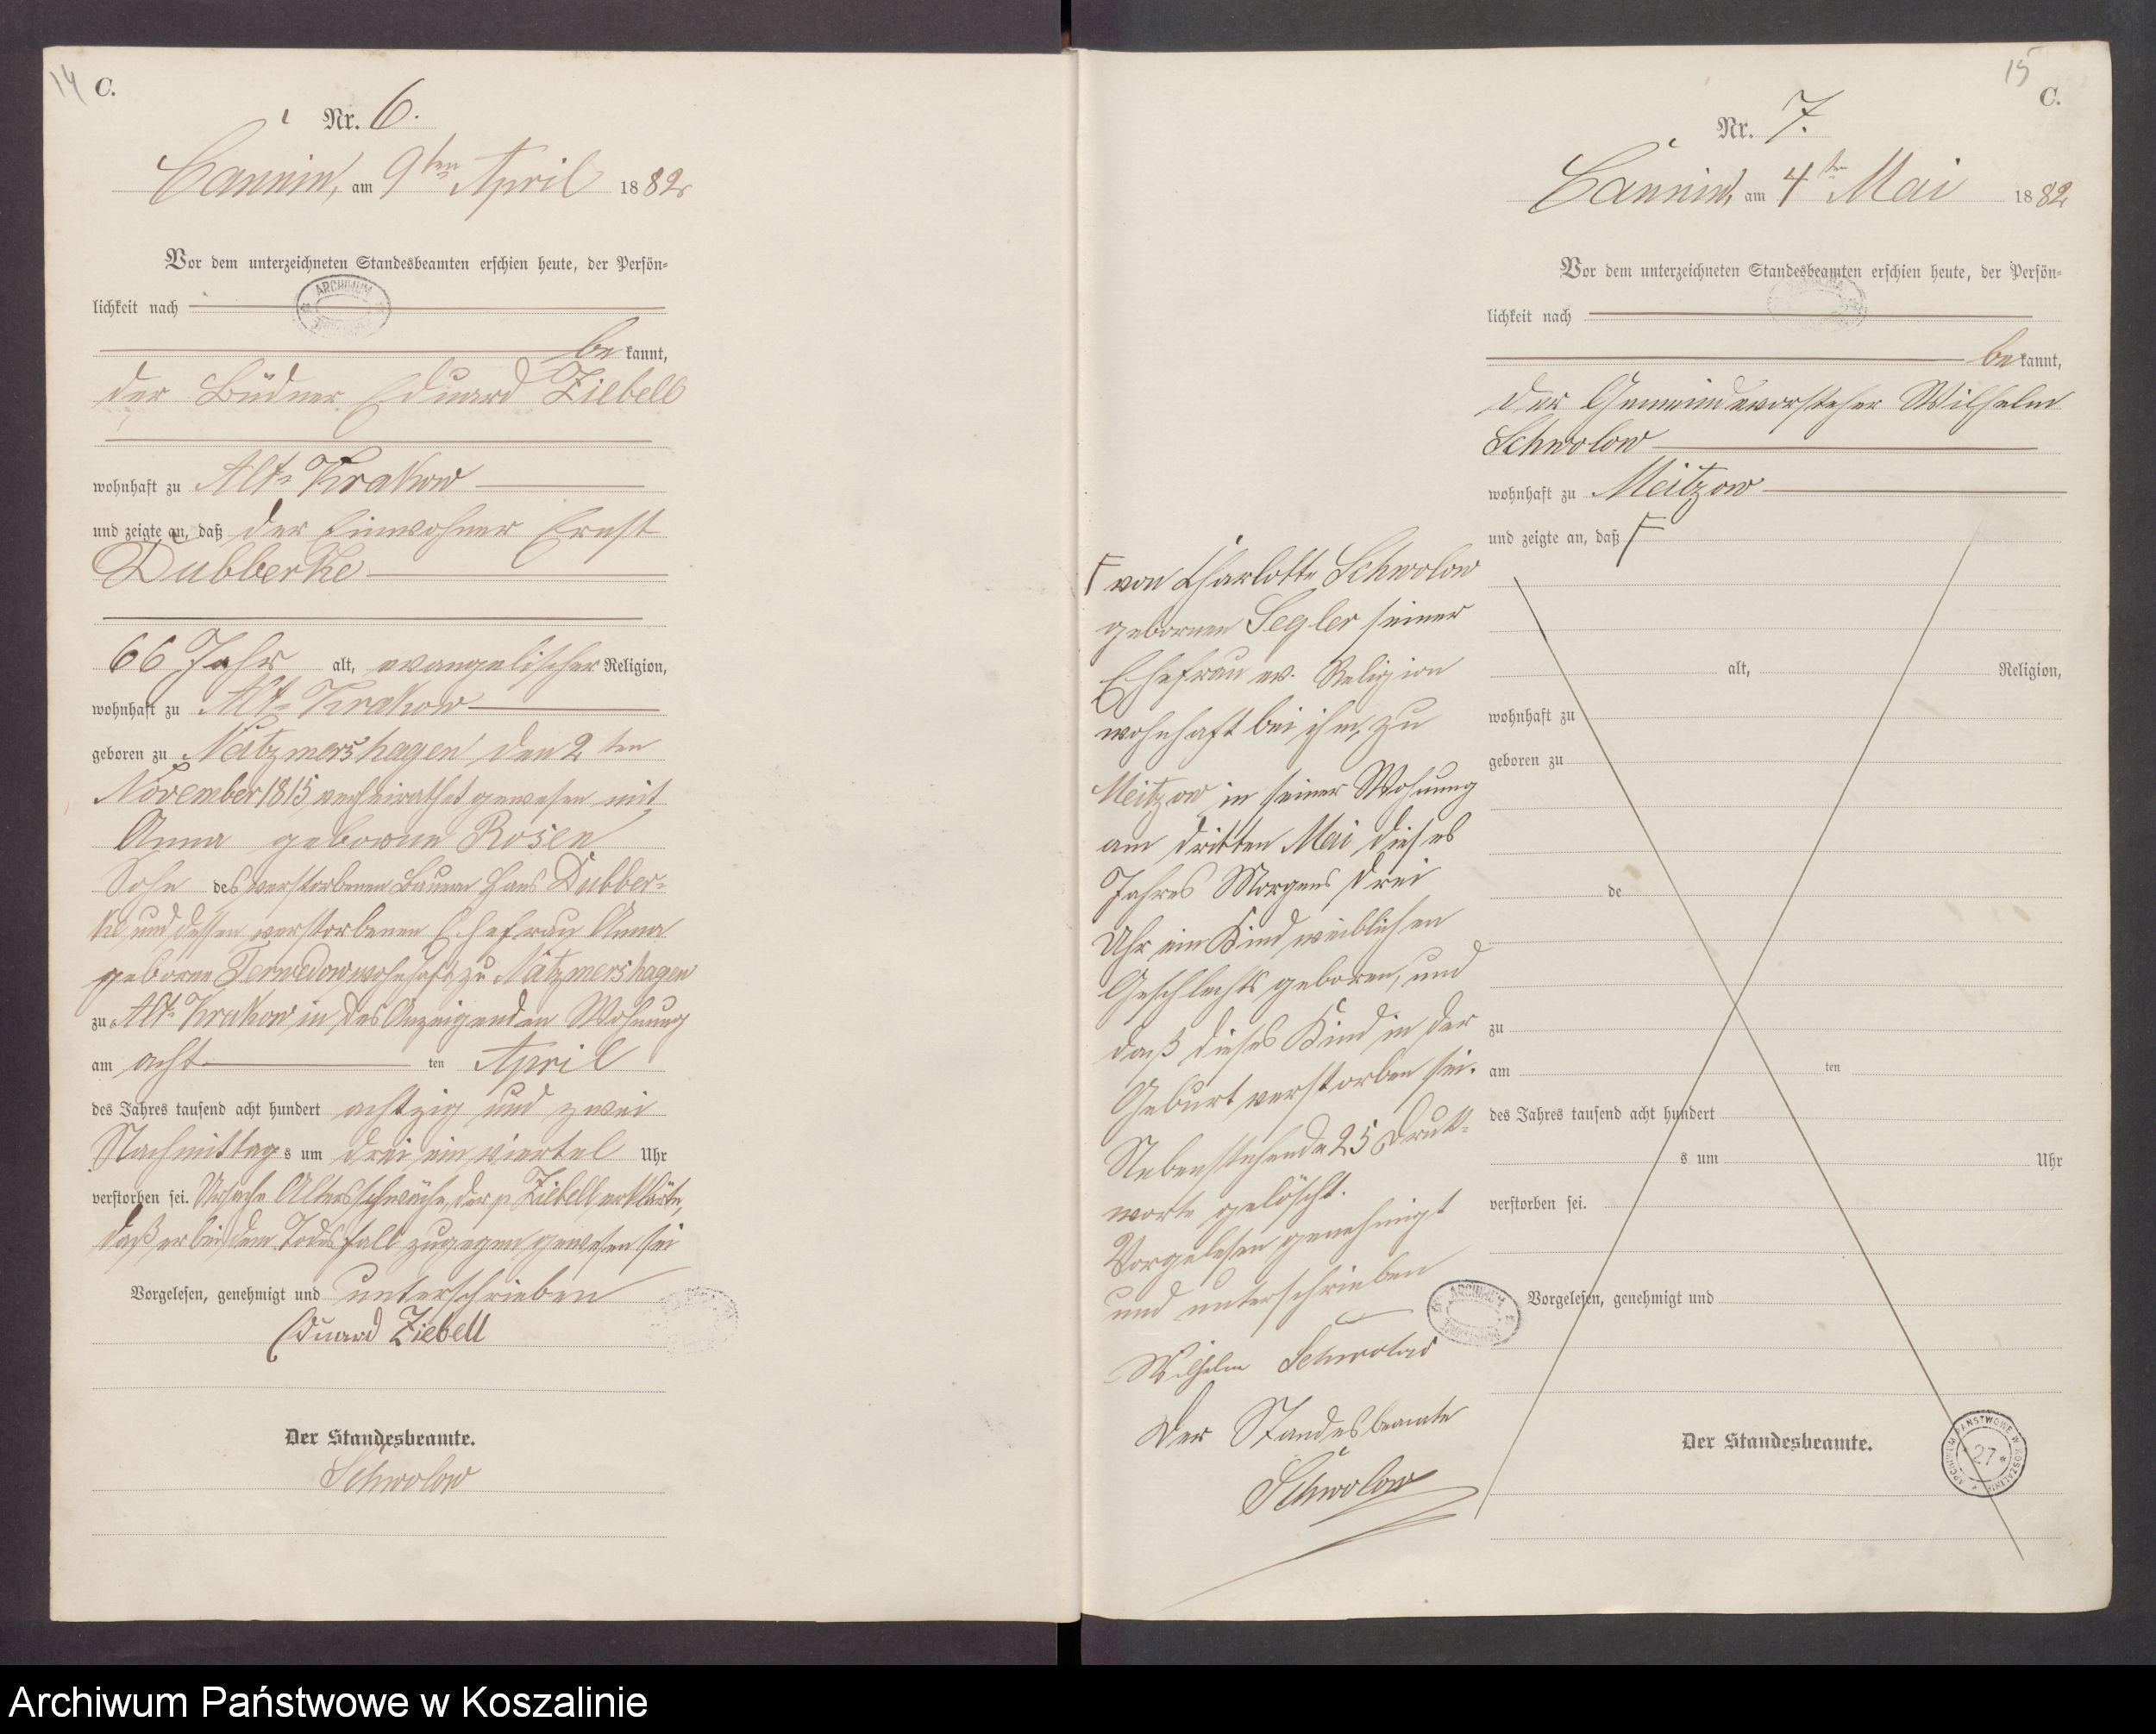 14 C.
Nr. 6.
Cannin, am 9ten April 1882
Vor dem unterzeichneten Standesbeamten erschien heute, der Persön-
lichkeit nach
be kannt,
der Büdner Eduard Ziebell
wohnhaft zu Alt-Krakow
und zeigte an, daß der Einwohner Ernst
Dubberke
66 Jahr alt, evangelischer Religion,
wohnhaft zu Alt-Krakow
geboren zu Natzmershagen den 2ten
November 1815, verheirathet gewesen mit
Anna geborne Rosen
Sohn des verstorbenen Bauern Hans Dubber-
ke und dessen verstorbenen Ehefrau Anna
geborne wohnhaft zu Natzmershagen
zu Alt-Krakow in des Anzeigenden Wohnung
am acht ten April
des Jahres tausend acht hundert achtzig und zwei
Nachmittag s um drei ein viertel Uhr
verstorben sei. Ursache Altersschwäche, der p. Ziebell erklärte,
daß er bei dem Todesfall zugegen gewesen sei
Vorgelesen, genehmigt und unterschrieben
Eduard Ziebell
Der Standesbeamte.
Schwolow
15
C.
Nr. 7.
Cannin, am 4ten Mai 1882
Vor dem unterzeichneten Standesbeamten erschien heute, der Persön-
lichkeit nach
be kannt,
der Gemeindevorsteher Wilhelm
Schwolow
wohnhaft zu Meitzow
und zeigte an, daß F
F von Charlotte Schwolow
gebornen Segler seiner
Ehefrau ev. Religion
wohnhaft bei ihm, zu
Meitzow in seiner Wohnung
am dritten Mai dieses
Jahres Morgens drei
Uhr ein Kind weiblichen
Geschlechts geboren, und
daß dieses Kind in der
Geburt verstorben sei.
Nebenstehende 25 Druck-
worte gelöscht.
Vorgelesen genehmigt
und unterschrieben
Wilhelm Schwolow
Der Standesbeamte
Schwolow
alt, Religion,
wohnhaft zu
geboren zu
de
zu
am ten
des Jahres tausend acht hundert
s um Uhr
verstorben sei.
Vorgelesen, genehmigt und
Der Standesbeamte.
ARCHIWUM PAŃSTWOWE W KOSZALINIE
27
Archiwum Państwowe w Koszalinie